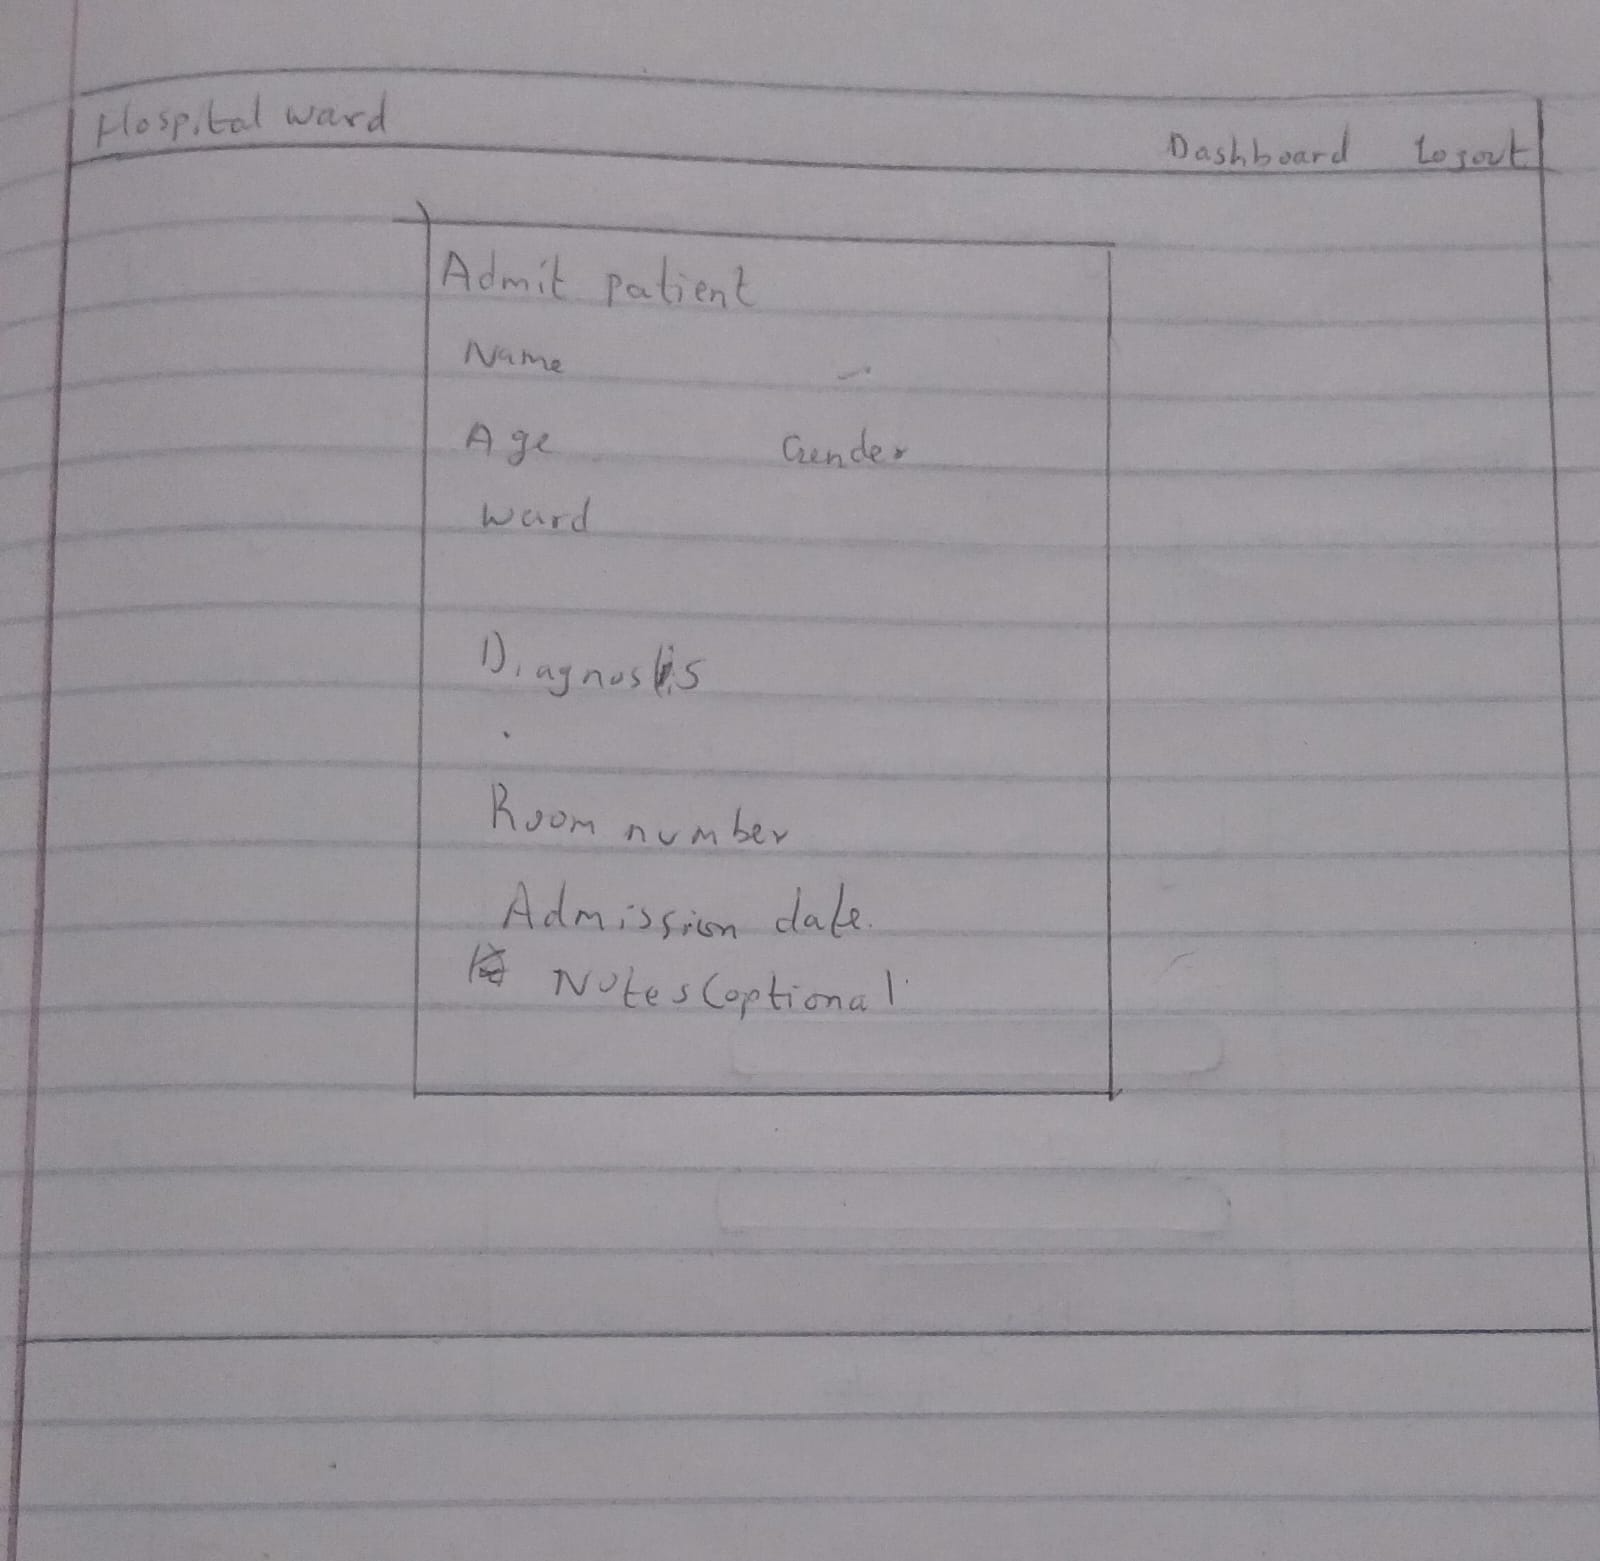 Hospital ward
Dashboard Logout
Admit patient
Name
Age Gender
Ward
Diagnosis
Room number
Admission date.
Notes (optional